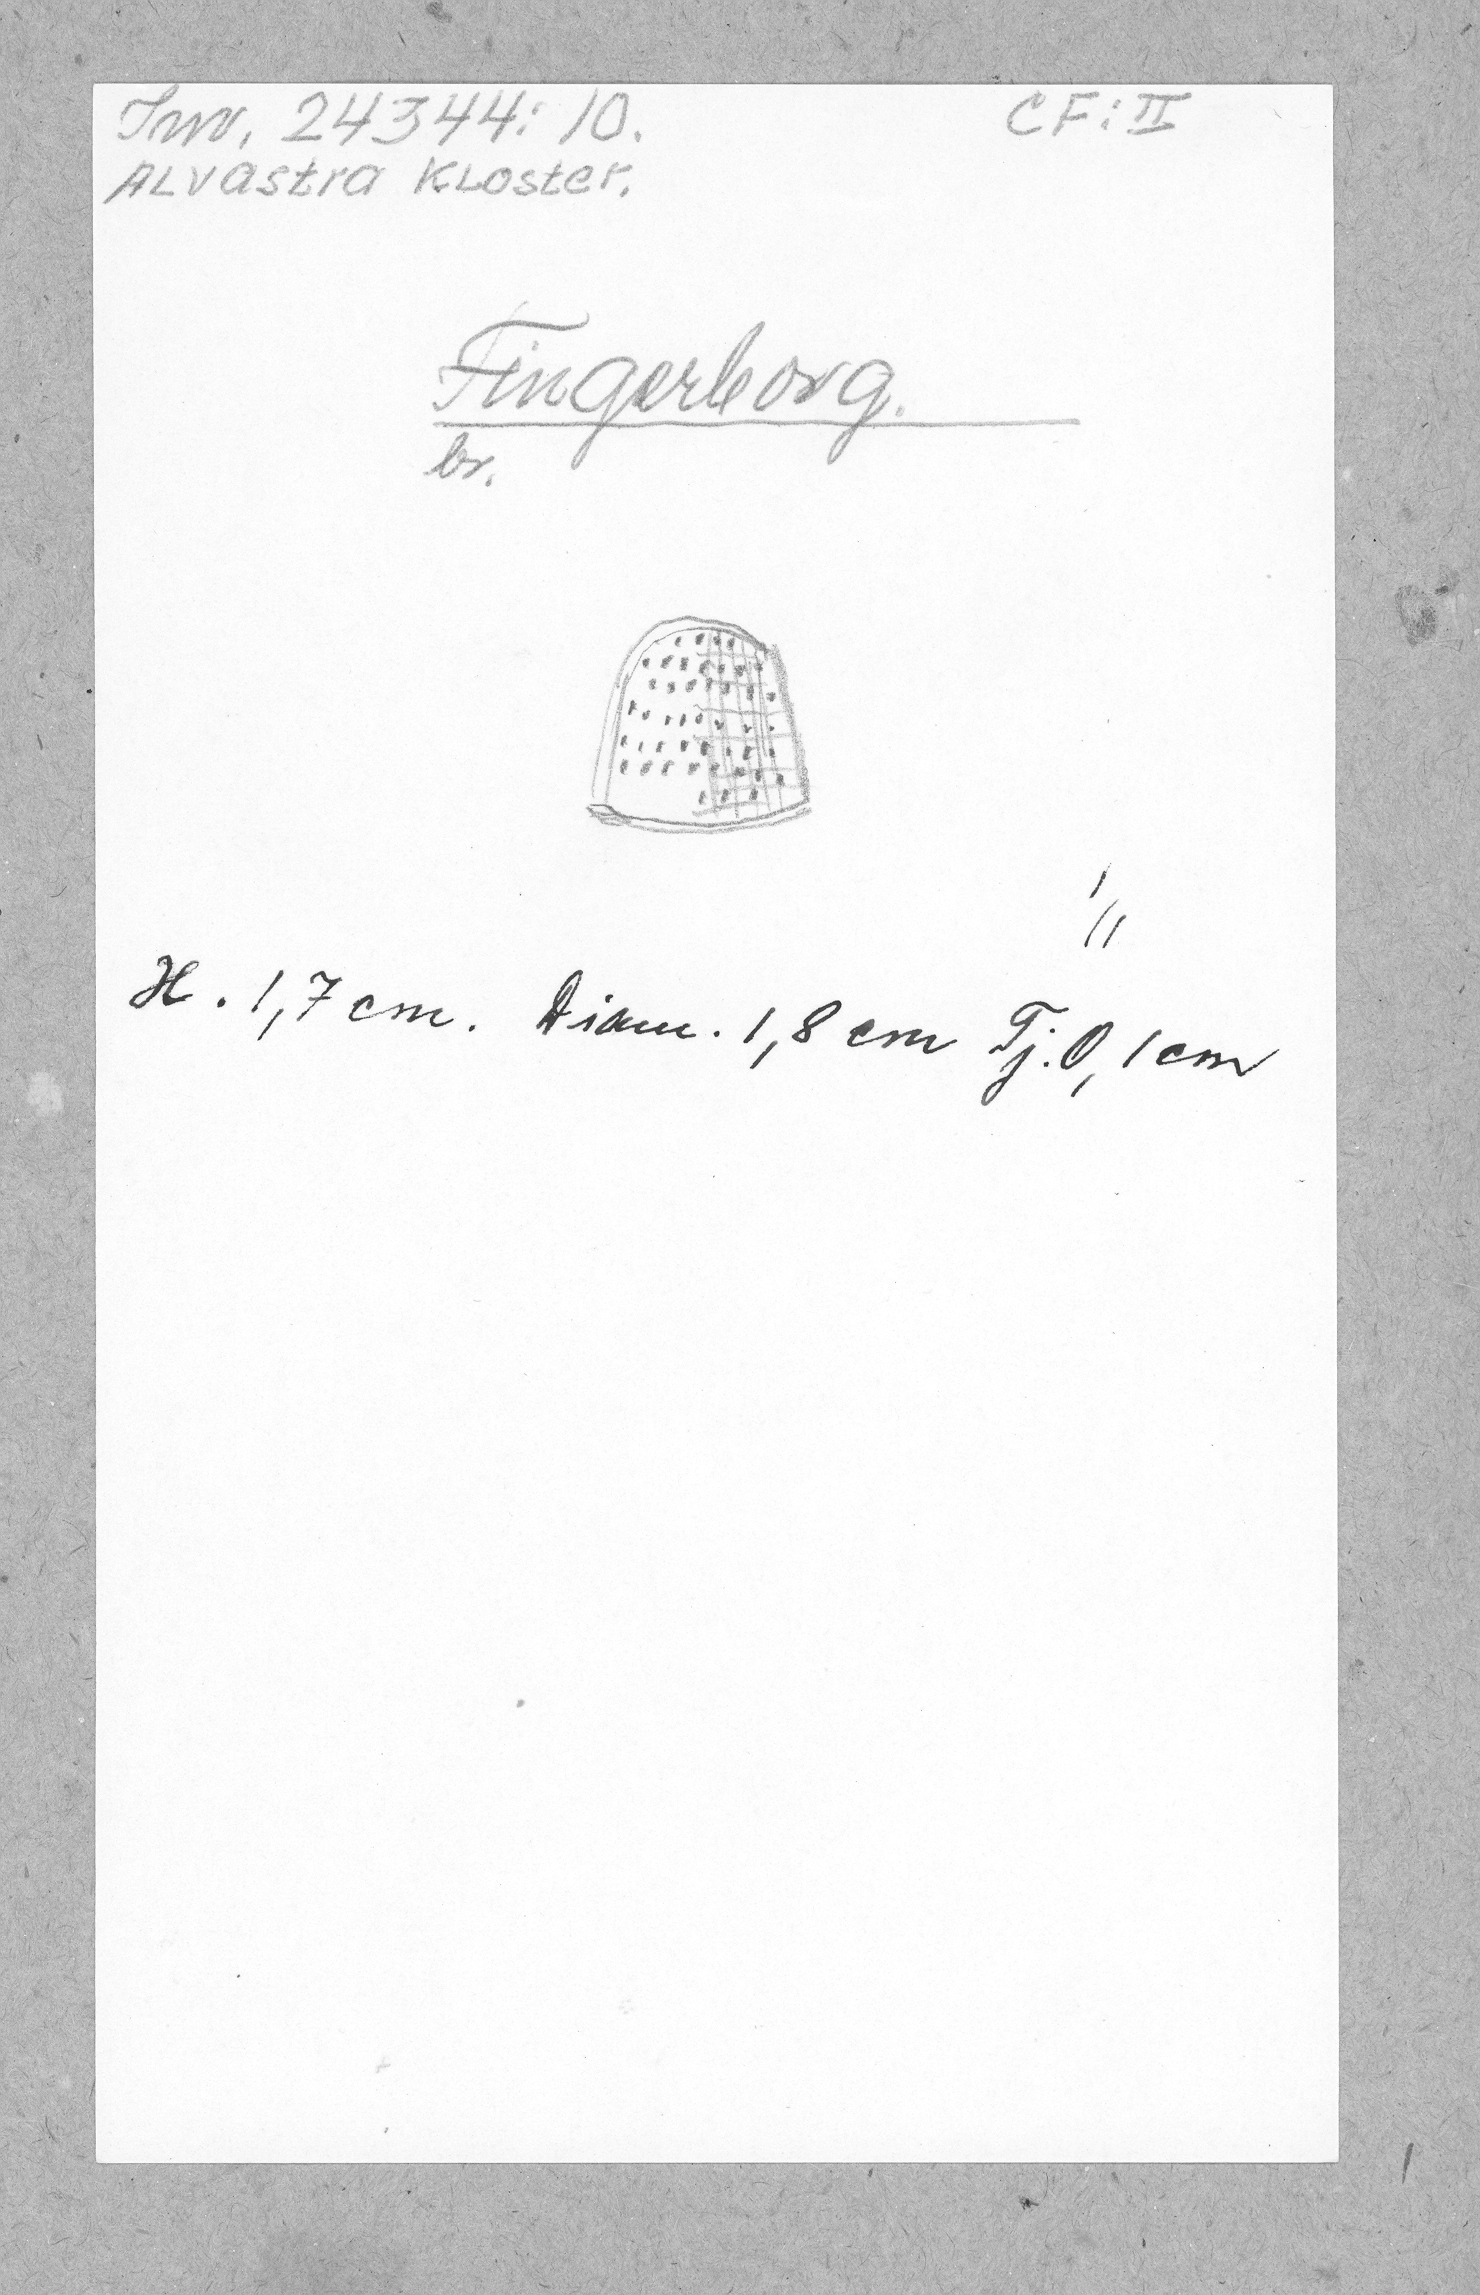 Inv. 24344:10.
CF:II
ALvastra KLoster.
Fingerborg.
br.
1/1
H. 1,7 cm. Diam. 1,8 cm Tj. 0,1 cm